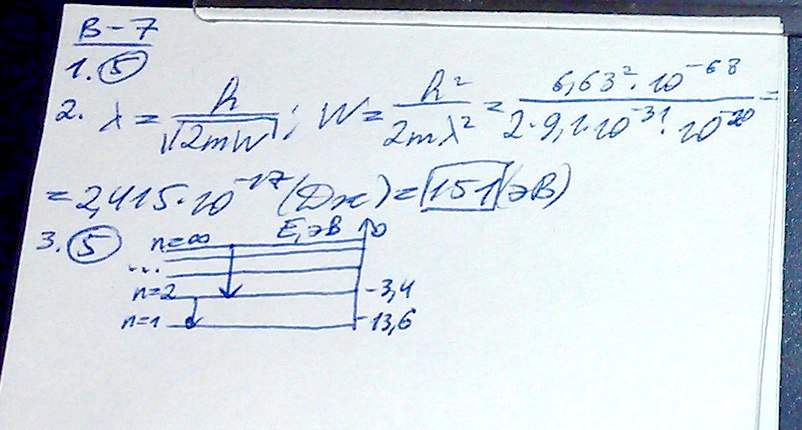 В-7
1. 5
2. λ = h / √2mW ; W = h² / 2mλ² = 6,63² · 10⁻⁶⁸ / 2 · 9,1 · 10⁻³¹ · 10⁻²⁰ =
= 2,415 · 10⁻¹⁷ (Дж) = 151 (эВ)
3. 5 n=∞ E, эВ 0
...
n=2 -3,4
n=1 -13,6